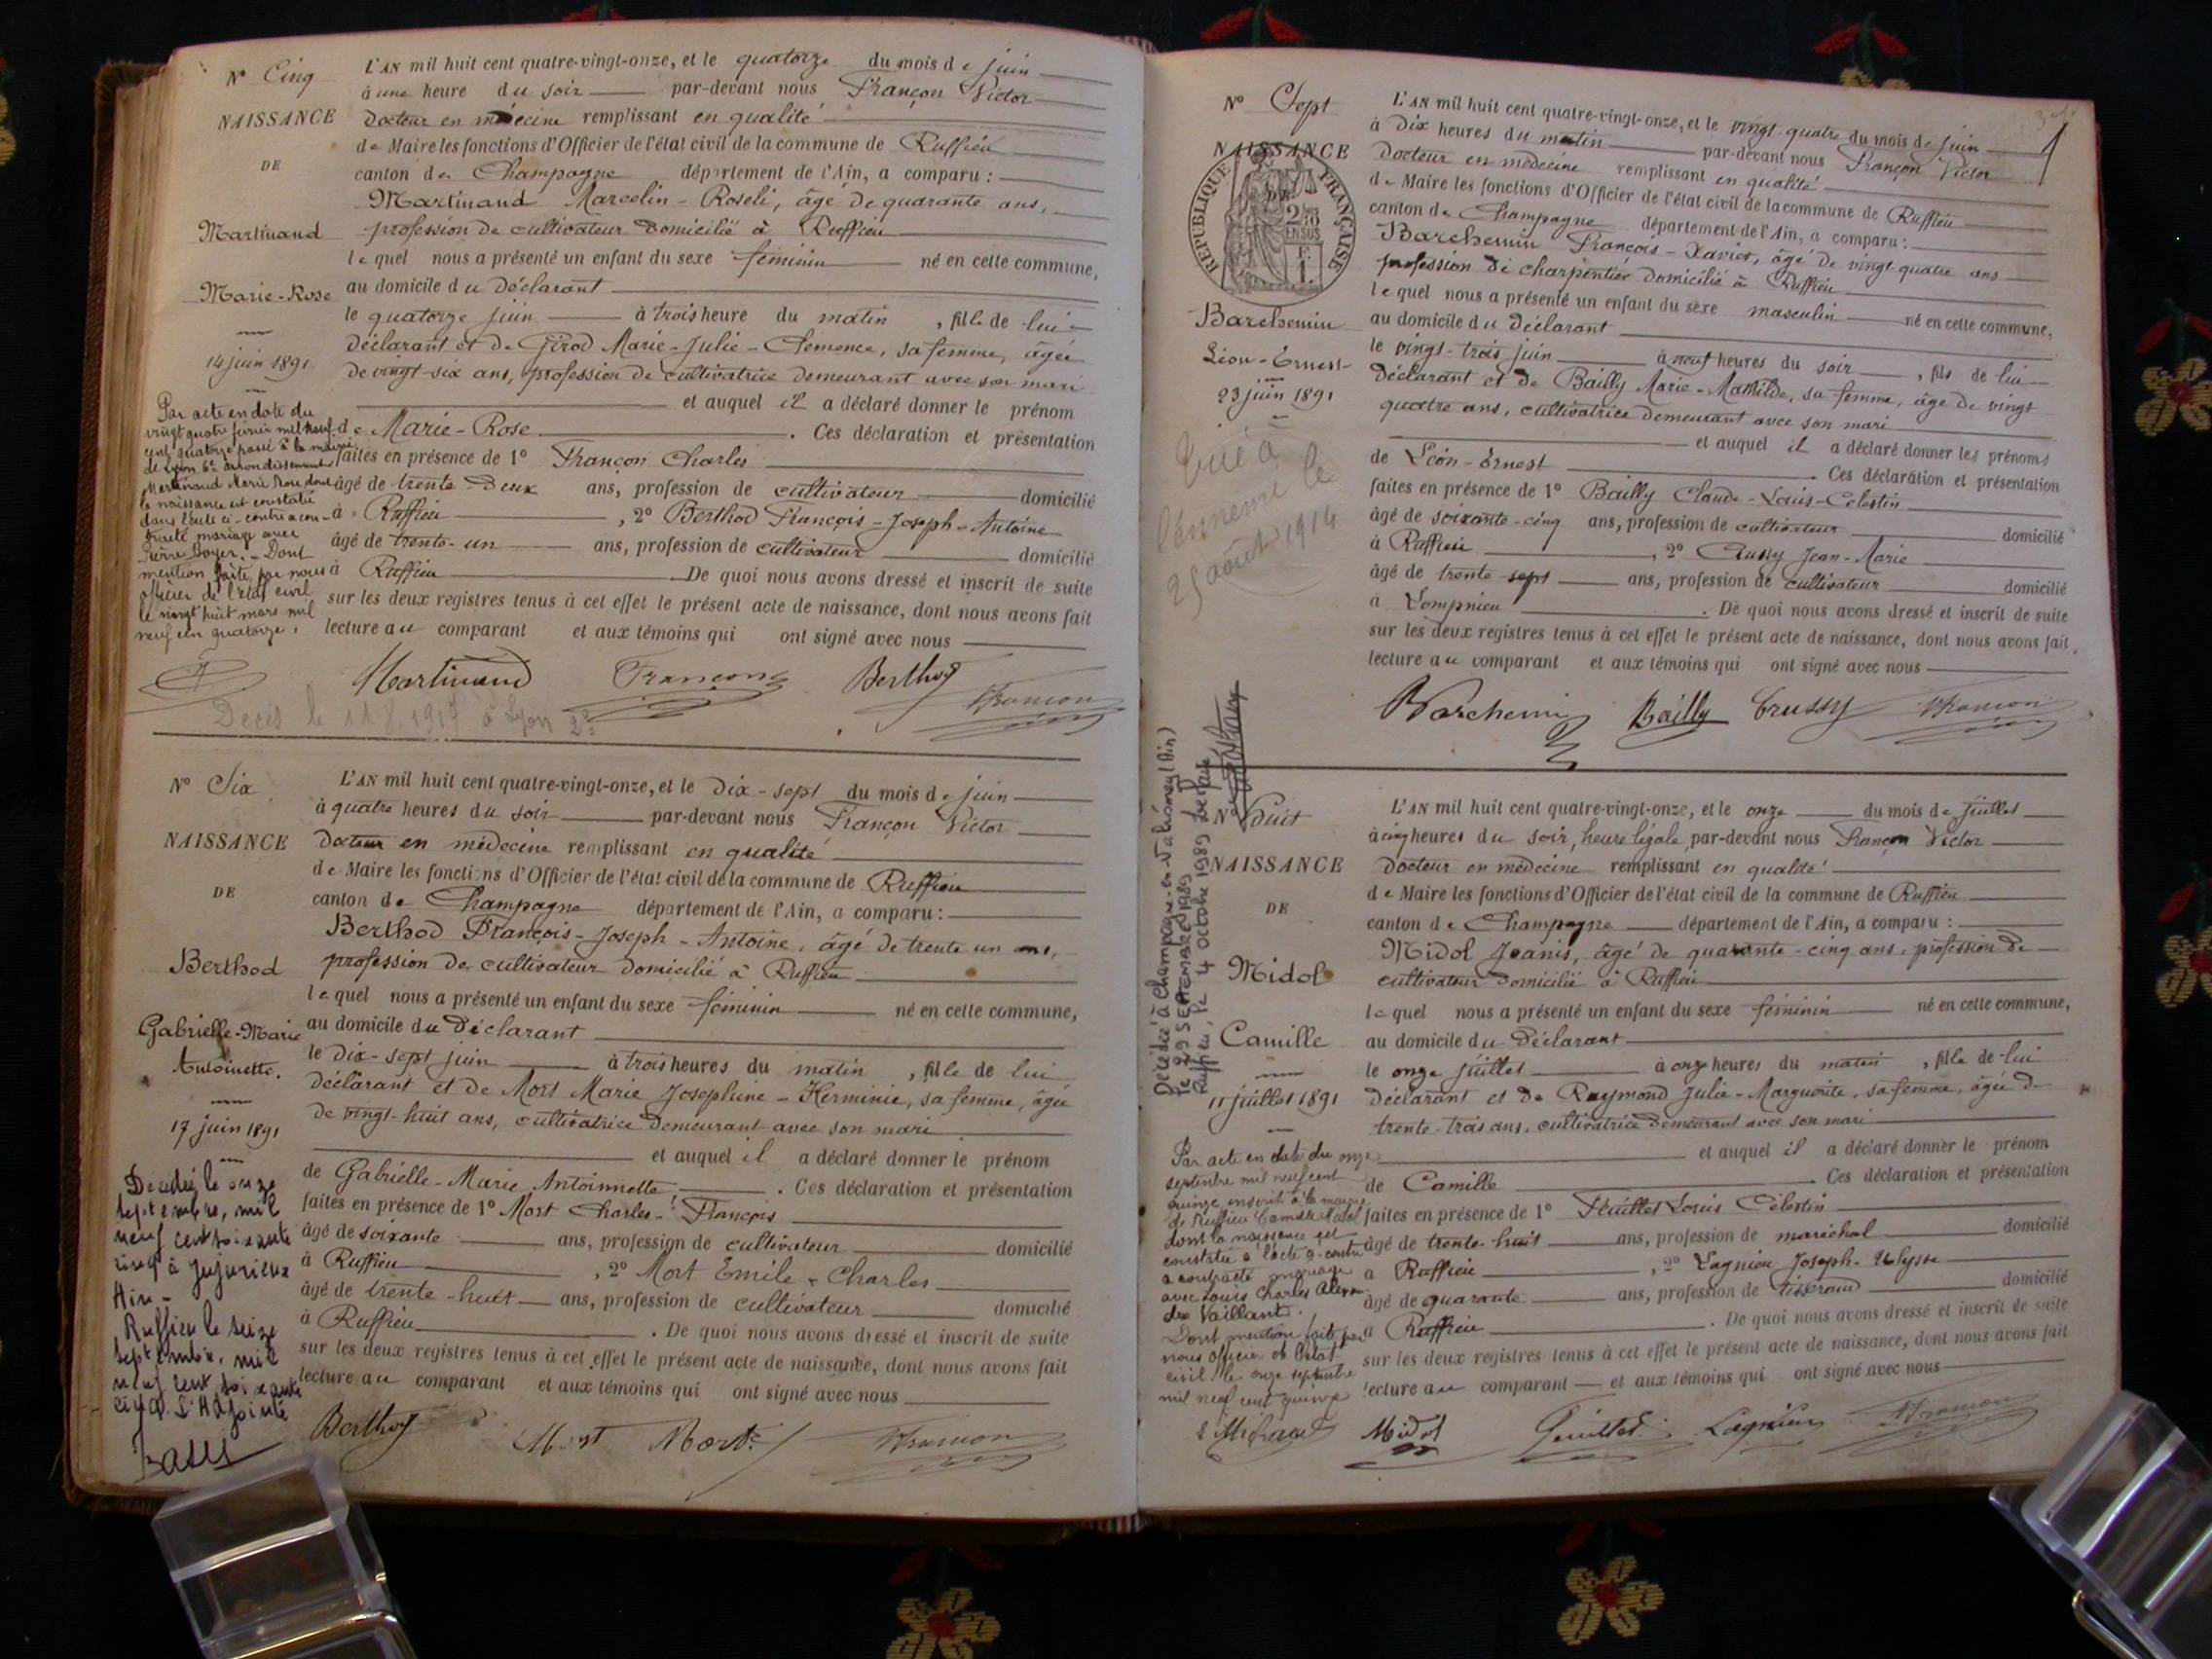 N° Cinq
NAISSANCE
DE
Martinand
Marie-Rose
14 juin 1891
Par acte en date du
vingt quatre février mil neuf
cent quatorze passé à la mairie
de Lyon 6e arrondissement
Martinand Marie Rose dont
la naissance est constatée
dans l'acte ci-contre a con-
tracté mariage avec
Pierre Boyer. - Dont
mention faite par nous
officier de l'état civil
le vingt huit mars mil
neuf cen quatorze.
L'AN mil huit cent quatre-vingt-onze, et le quatorze du mois de juin
à une heure du soir par-devant nous Françon Victor
Docteur en médecine remplissant en qualité
de Maire les fonctions d'Officier de l'état civil de la commune de Ruffieu
canton de Champagne département de l'Ain, a comparu :
Martinand Marcelin-Roseli, âgé de quarante ans,
profession de cultivateur domicilié à Ruffieu
lequel nous a présenté un enfant du sexe féminin né en cette commune,
au domicile du Déclarant
le quatorze juin à trois heure du matin, fille de lui
déclarant et de Girod Marie-Julie-Clémence, sa femme, âgée
de vingt-six ans, profession de cultivatrice demeurant avec son mari
et auquel il a déclaré donner le prénom
de Marie-Rose. Ces déclaration et présentation
faites en présence de 1° Françon Charles
âgé de trente-deux ans, profession de cultivateur domicilié
à Ruffieu, 2° Berthod François-Joseph-Antoine
âgé de trente-un ans, profession de cultivateur domicilié
à Ruffieu. De quoi nous avons dressé et inscrit de suite
sur les deux registres tenus à cet effet le présent acte de naissance, dont nous avons fait
lecture au comparant et aux témoins qui ont signé avec nous
Martinand Françon Berthod Françon
Decès le 11.8.1917 à Lyon 2e
N° Six
NAISSANCE
DE
Berthod
Gabrielle-Marie
Antoinette.
17 juin 1891
Decédée le onze
septembre, mil
neuf cent soixante
cinq à Jujurieux
Ain -
Ruffieu le seize
septembre, mil
neuf cent soixante
cinq. L'Adjointe
L'AN mil huit cent quatre-vingt-onze, et le Dix-sept du mois de juin
à quatre heures du soir par-devant nous Françon Victor
Docteur en médecine remplissant en qualité
de Maire les fonctions d'Officier de l'état civil de la commune de Ruffieu
canton de Champagne département de l'Ain, a comparu :
Berthod François-Joseph-Antoine, âgé de trente un ans,
profession de cultivateur domicilié à Ruffieu
lequel nous a présenté un enfant du sexe féminin né en cette commune,
au domicile du Déclarant
le Dix-sept juin à trois heures du matin, fille de lui
déclarant et de Mort Marie Josephine-Herminie, sa femme, âgée
de vingt-huit ans, cultivatrice demeurant avec son mari
et auquel il a déclaré donner le prénom
de Gabrielle-Marie Antoinnette. Ces déclaration et présentation
faites en présence de 1° Mort Charles-François
âgé de soixante ans, profession de cultivateur domicilié
à Ruffieu, 2° Mort Emile-Charles
âgé de trente-huit ans, profession de cultivateur domicilié
à Ruffieu. De quoi nous avons dressé et inscrit de suite
sur les deux registres tenus à cet effet le présent acte de naissance, dont nous avons fait
lecture au comparant et aux témoins qui ont signé avec nous
Berthod Mort Mort Françon
N° Sept
NAISSANCE
DE
REPUBLIQUE FRANÇAISE
2/10 EN SUS
F. 1.
Barchemin
Léon-Ernest
23 juin 1891
Tué à
l'ennemi le
25 août 1914
L'AN mil huit cent quatre-vingt-onze, et le vingt-quatre du mois de juin
à Dix heures du matin par-devant nous Françon Victor
Docteur en médecine remplissant en qualité
de Maire les fonctions d'Officier de l'état civil de la commune de Ruffieu
canton de Champagne département de l'Ain, a comparu :
Barchemin François-Xavier, âgé de vingt-quatre ans
profession de charpentier domicilié à Ruffieu
lequel nous a présenté un enfant du sexe masculin né en cette commune,
au domicile du Déclarant
le vingt-trois juin à neuf heures du soir, fils de lui
déclarant et de Bailly Marie-Mathilde, sa femme, âge de vingt
quatre ans, cultivatrice demeurant avec son mari
et auquel il a déclaré donner les prénoms
de Léon-Ernest. Ces déclaration et présentation
faites en présence de 1° Bailly Claude-Louis-Celestin
âgé de soixante-cinq ans, profession de cultivateur domicilié
à Ruffieu, 2° Jean-Marie
âgé de trente-sept ans, profession de cultivateur domicilié
à Lompnieu. De quoi nous avons dressé et inscrit de suite
sur les deux registres tenus à cet effet le présent acte de naissance, dont nous avons fait
lecture au comparant et aux témoins qui ont signé avec nous
Barchemin Bailly Françon
Décédée à Champagne-en-Valromey (Ain)
le 29 SEPTEMBRE 1989
Ruffieu, le 4 octobre 1989
N° Huit
NAISSANCE
DE
Midol
Camille
11 juillet 1891
Par acte en date du onze
septembre mil neuf cent
quinze inscrit à la mairie
de Ruffieu Camille Midol
dont la naissance est
constatée à l'acte ci-contre
a contracté mariage
avec Louis Charles Alexan
dre Vaillant.
Dont mention faite par
nous officier de l'état
civil le onze septembre
mil neuf cent quinze
L'AN mil huit cent quatre-vingt-onze, et le onze du mois de juillet
à cinq heures du soir, heure légale, par-devant nous Françon Victor
Docteur en médecine remplissant en qualité
de Maire les fonctions d'Officier de l'état civil de la commune de Ruffieu
canton de Champagne département de l'Ain, a comparu :
Midol Joanis, âgé de quarante-cinq ans, profession de
cultivateur domicilié à Ruffieu
lequel nous a présenté un enfant du sexe féminin né en cette commune,
au domicile du Déclarant
le onze juillet à onze heures du matin, fille de lui
déclarant et de Raymond Julie-Marguerite, sa femme, âgée de
trente-trois ans, cultivatrice demeurant avec son mari
et auquel il a déclaré donner le prénom
de Camille. Ces déclaration et présentation
faites en présence de 1° Louis Célestin
âgé de trente-huit ans, profession de maréchal domicilié
à Ruffieu, 2° Lagnieu Joseph-Ulysse
âgé de quarante ans, profession de Tisserand domicilié
à Ruffieu. De quoi nous avons dressé et inscrit de suite
sur les deux registres tenus à cet effet le présent acte de naissance, dont nous avons fait
lecture au comparant et aux témoins qui ont signé avec nous
Midol Lagnieu Françon